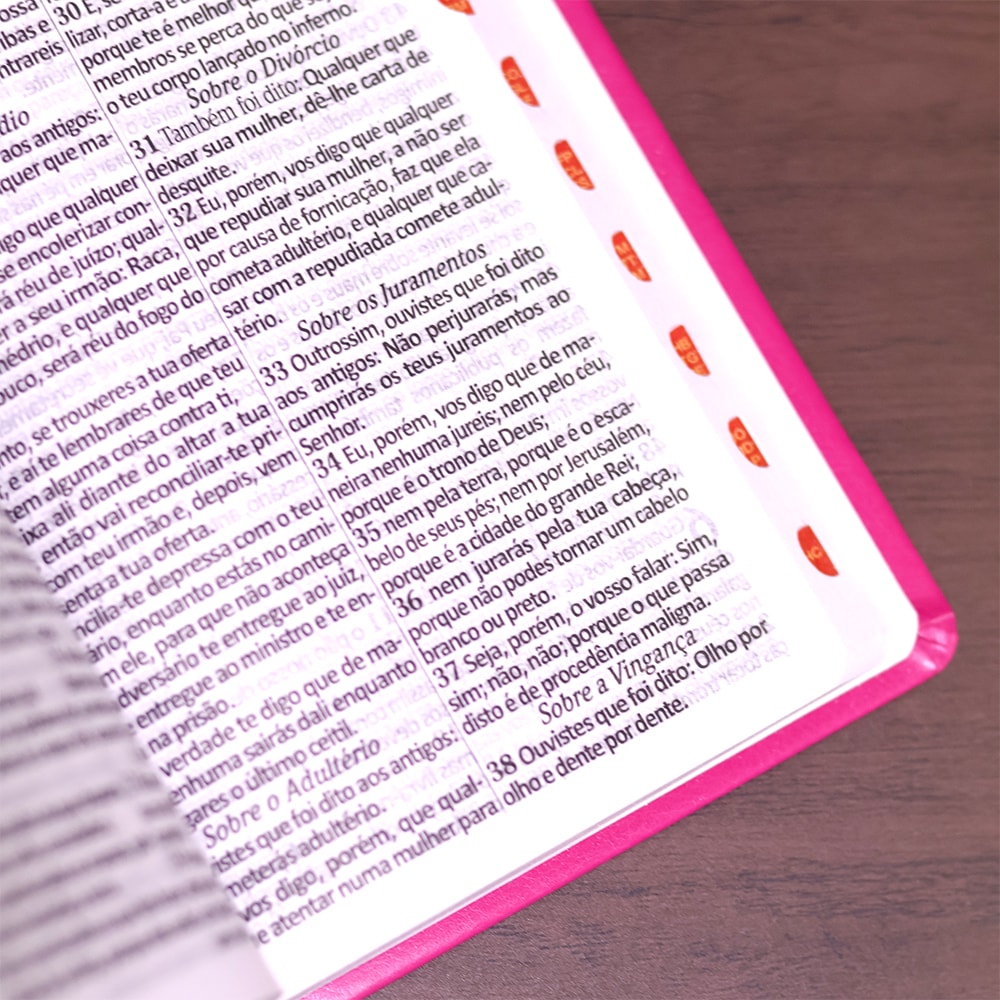 ossa
lbas e
ntrareis
dio
aos antigos:
quer que ma-
lgo que qualquer
se encolerizar con-
rá réu de juízo; qual-
er a seu irmão: Raca,
nédrio, e qualquer que
ouco, será réu do fogo do
nto, se trouxeres a tua oferta
r, e aí te lembrares de que teu
em alguma coisa contra ti,
ixa ali diante do altar a tua
então vai reconciliar-te pri-
om teu irmão e, depois, vem
senta a tua oferta.
ncilia-te depressa com o teu
ário, enquanto estás no cami-
m ele, para que não aconteça
dversário te entregue ao juiz,
entregue ao ministro e te en-
na prisão.
verdade te digo que de ma-
enhuma sairás dali enquanto
gares o último ceitil.
Sobre o Adultério
istes que foi dito aos antigos:
meterás adultério.
vos digo, porém, que qual-
e atentar numa mulher para
30 E, se
lizar, corta-a e
porque te é melhor q
membros se perca do que s
o teu corpo lançado no inferno.
Sobre o Divórcio
31 Também foi dito: Qualquer que
deixar sua mulher, dê-lhe carta de
desquite.
32 Eu, porém, vos digo que qualquer
que repudiar sua mulher, a não ser
por causa de fornicação, faz que ela
cometa adultério, e qualquer que ca-
sar com a repudiada comete adul-
tério.
Sobre os Juramentos
33 Outrossim, ouvistes que foi dito
aos antigos: Não perjurarás, mas
cumprirás os teus juramentos ao
Senhor.
34 Eu, porém, vos digo que de ma-
neira nenhuma jureis; nem pelo céu,
porque é o trono de Deus;
35 nem pela terra, porque é o esca-
belo de seus pés; nem por Jerusalém,
porque é a cidade do grande Rei;
36 nem jurarás pela tua cabeça,
porque não podes tornar um cabelo
branco ou preto.
37 Seja, porém, o vosso falar: Sim,
sim; não, não; porque o que passa
disto é de procedência maligna.
Sobre a Vingança
38 Ouvistes que foi dito: Olho por
olho e dente por dente.